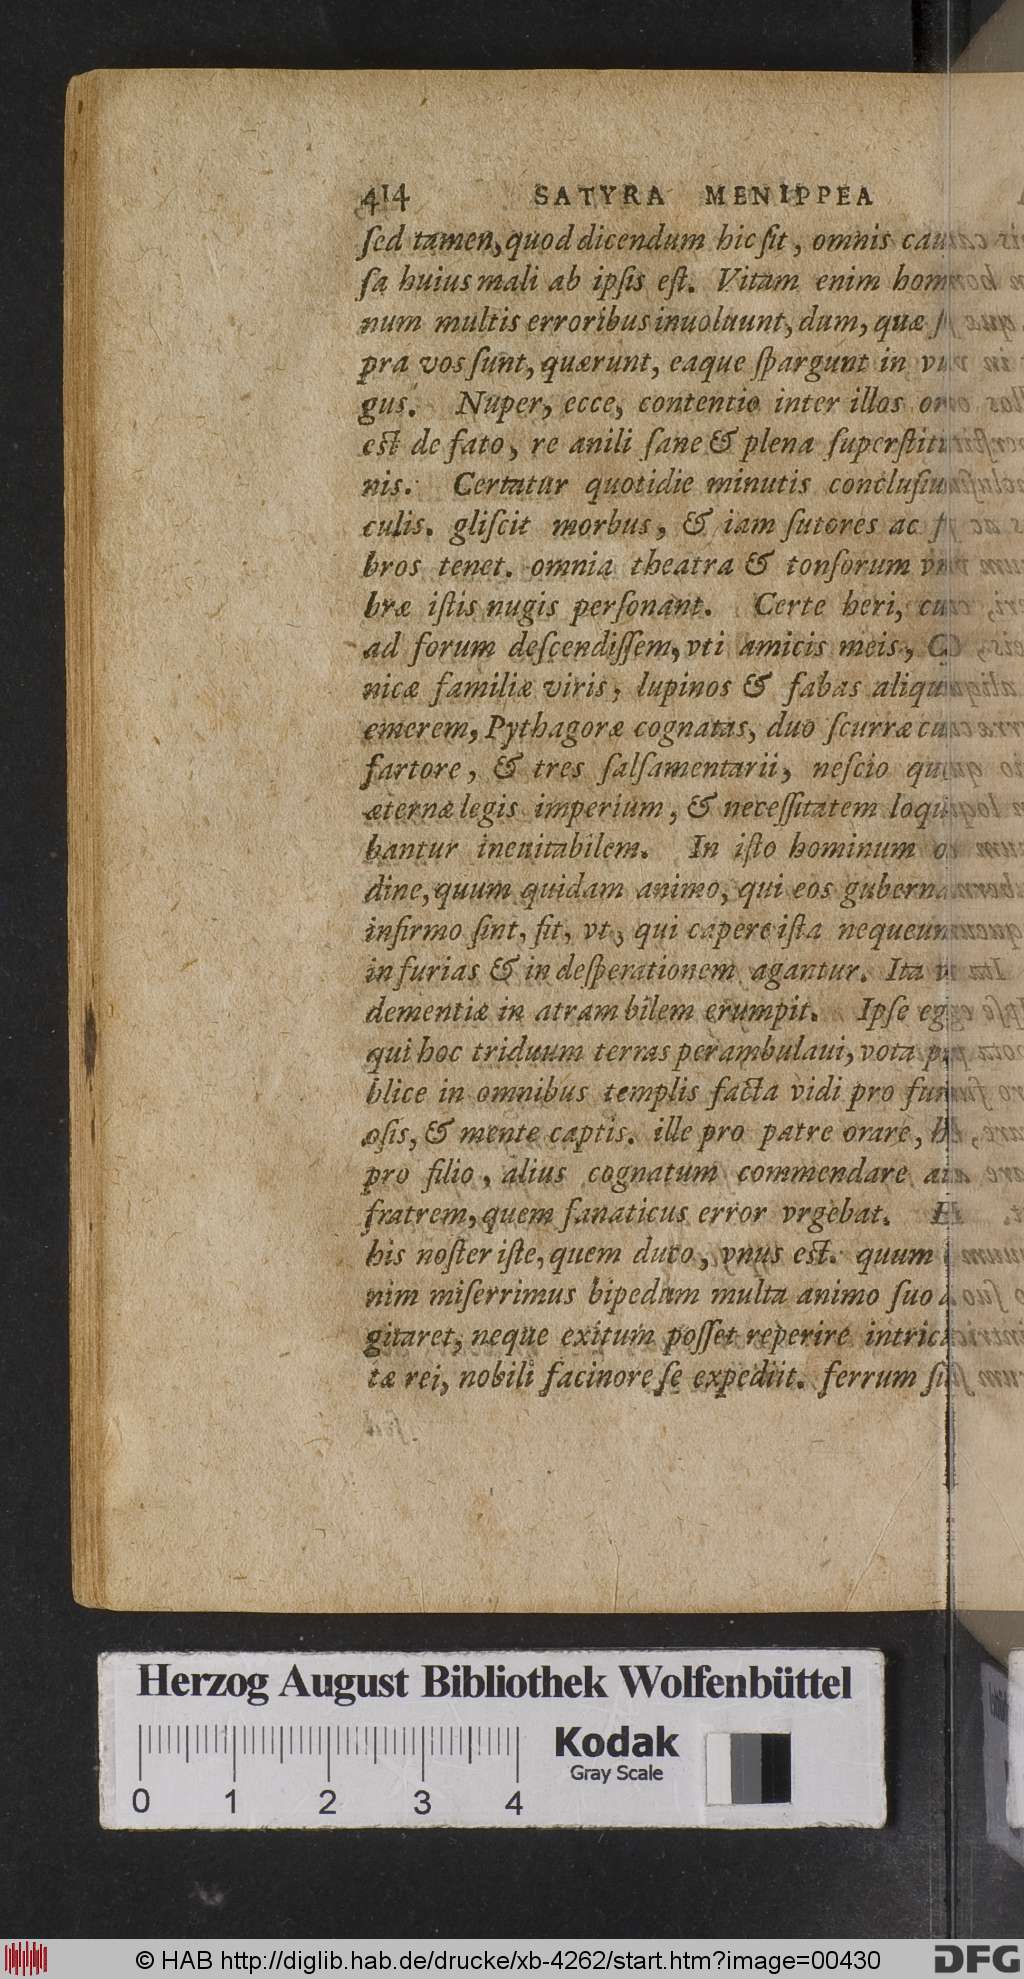 414 SATYRA MENIPPEA
ſed tamen, quod dicendum hic ſit, omnis cau
ſa huius mali ab ipſis eſt. Vitam enim hom
num multis erroribus inuoluunt, dum, quæ
pra vos ſunt, quærunt, eaque ſpargunt in
gus. Nuper, ecce, contentio inter illos
est de fato, re anili ſane & plena ſuperſtiti
nis. Certatur quotidie minutis concluſiun
culis. gliſcit morbus, & iam ſutores ac
bros tenet. omnia theatra & tonſorum
bræ iſtis nugis perſonant. Certe heri, cum
ad forum deſcendiſſem, vti amicis meis,
nicæ familiæ viris, lupinos & fabas aliqu
emerem, Pythagoræ cognatas, duo ſcurræ cum
fartore, & tres ſalſamentarii, neſcio quid
æternæ legis imperium, & neceſſitatem loqu
bantur ineuitabilem. In iſto hominum or
dine, quum quidam animo, qui eos guberna
infirmo ſint, fit, vt, qui capere iſta nequeunt
in furias & in deſperationem agantur. Ita
dementiæ in atram bilem erumpit. Ipſe eg
qui hoc triduum terras perambulaui, vota pu
blice in omnibus templis facta vidi pro furi
oſis, & mente captis. ille pro patre orare,
pro filio, alius cognatum commendare
fratrem, quem fanaticus error vrgebat.
his noſter iſte, quem duco, vnus eſt. quum
nim miſerrimus bipedum multa animo ſuo
gitaret, neque exitum poſſet reperire intrica
tæ rei, nobili facinore ſe expediit. ferrum
Herzog August Bibliothek Wolfenbüttel
Kodak
Gray Scale
0 1 2 3 4
© HAB http://diglib.hab.de/drucke/xb-4262/start.htm?image=00430
DFG